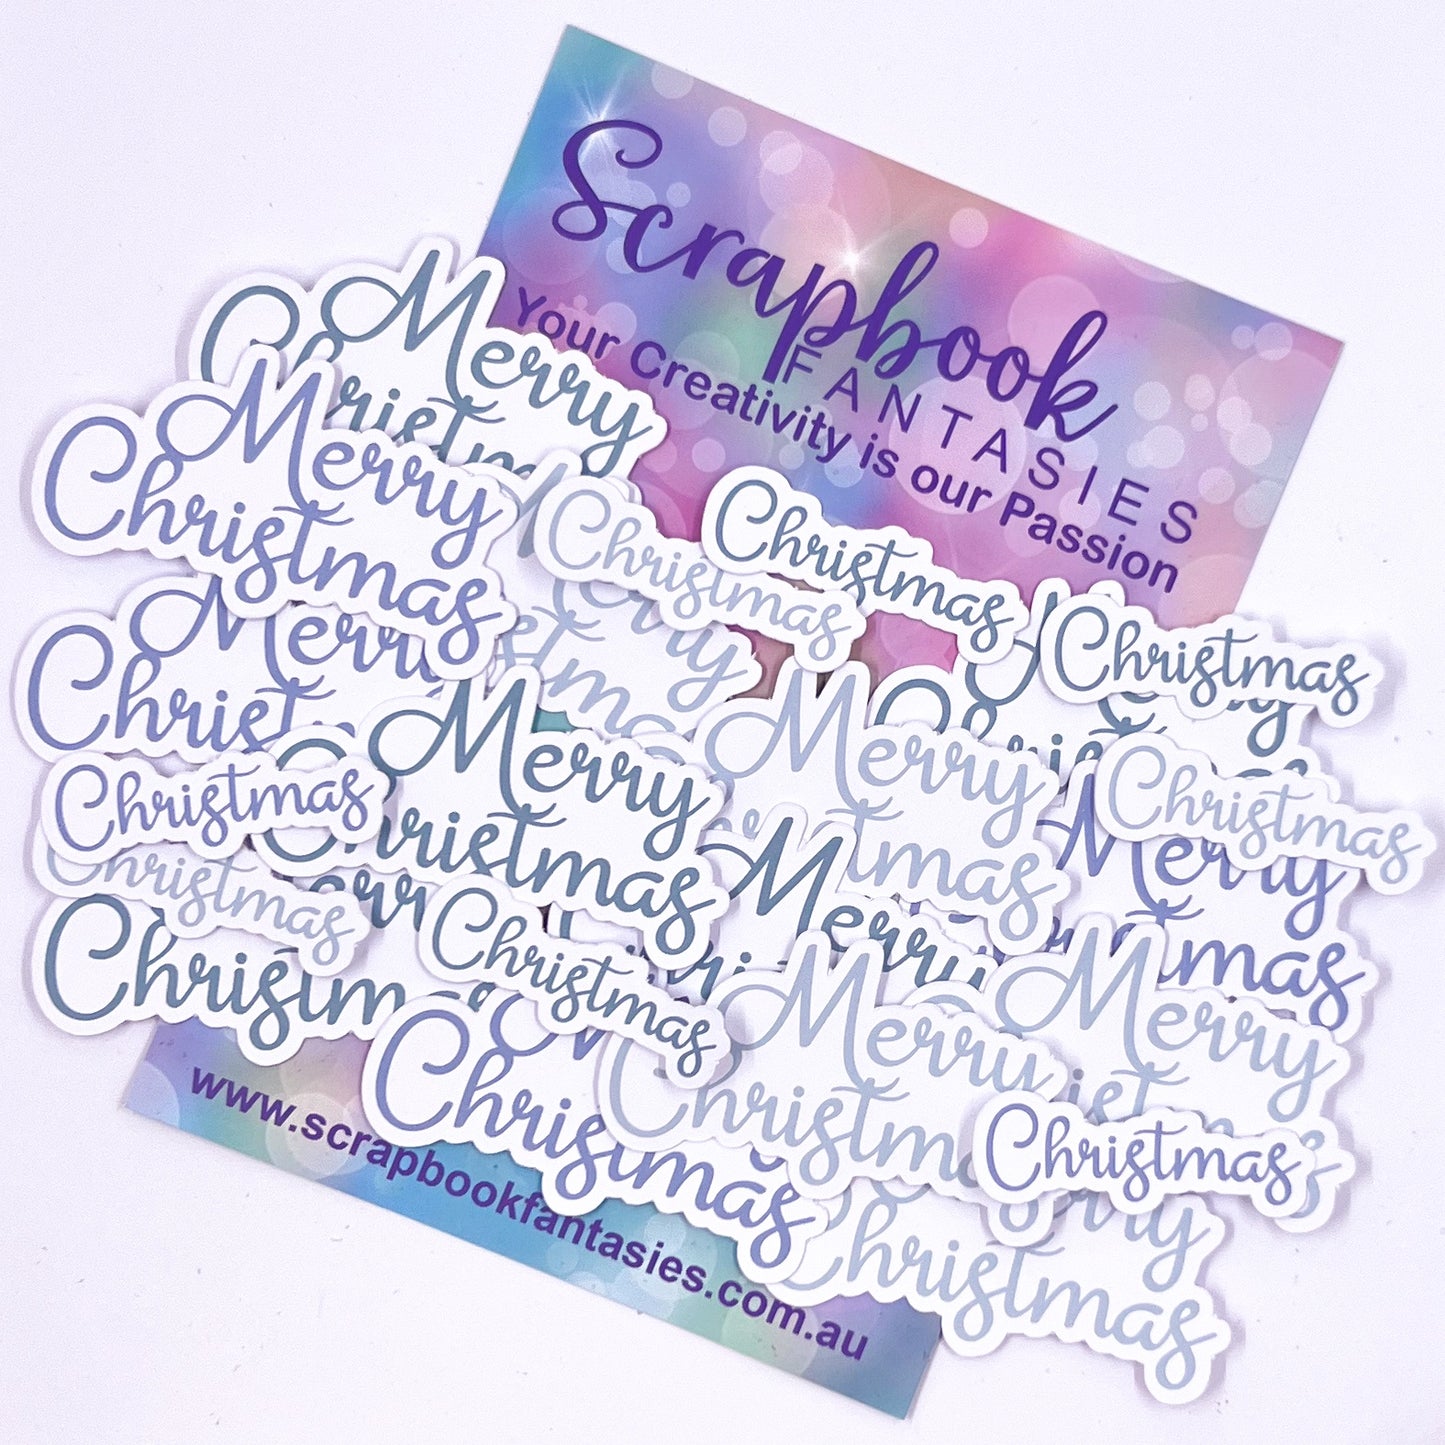 Scrapbook
FANTASIES
Your Creativity is our Passion
Merry
Christmas
Merry
Christmas
Christmas
Christmas
Christmas
Merry
Christmas
Merry
Christmas
Merry
Christmas
Christmas
Merry
Christmas
Christmas
Christmas
Merry
Christmas
Christmas
Merry
Christmas
Merry
Christmas
Christmas
Christmas
www.scrapbookfantasies.com.au